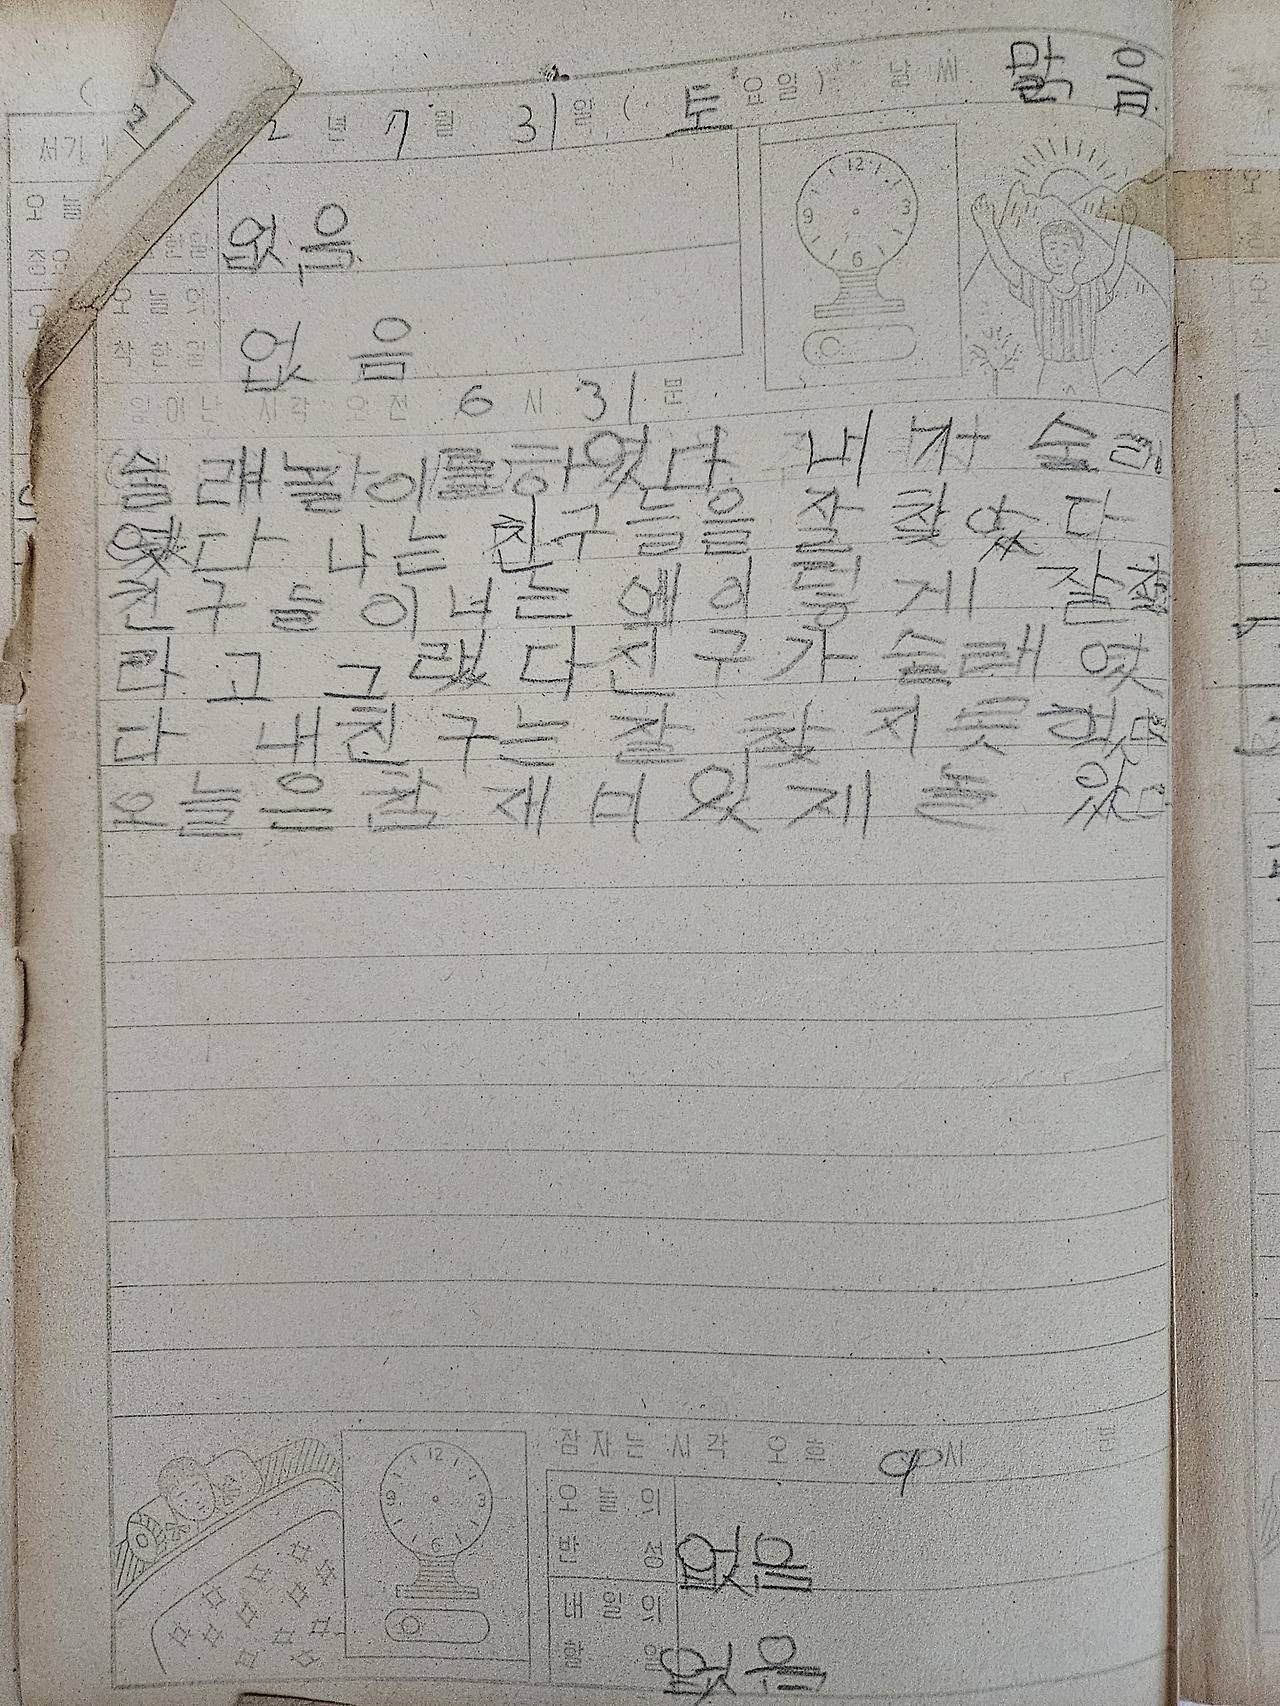 2 년 7 월 31 일 ( 토 요일 ) 날 씨 맑 음
서기
오 늘
없음
한일
오 늘 의
착 한 일 없 음
일어난 시각 오전 6 시 31 분
술래놀이를하였다 내가 술래
였다 나는 친구들을 잘 찾았다
친구들이너는 왜이렇게 잘찾
라고 그랬다친구가 술래 엿
다 내친구는 잘 찾지못했다
오늘은 참 제미있게 놀았다
12
3
6
9
잠자는 시각 오후 9시 분
오 늘 의
반 성 없음
내 일 의
할 일 없음
12
3
6
9